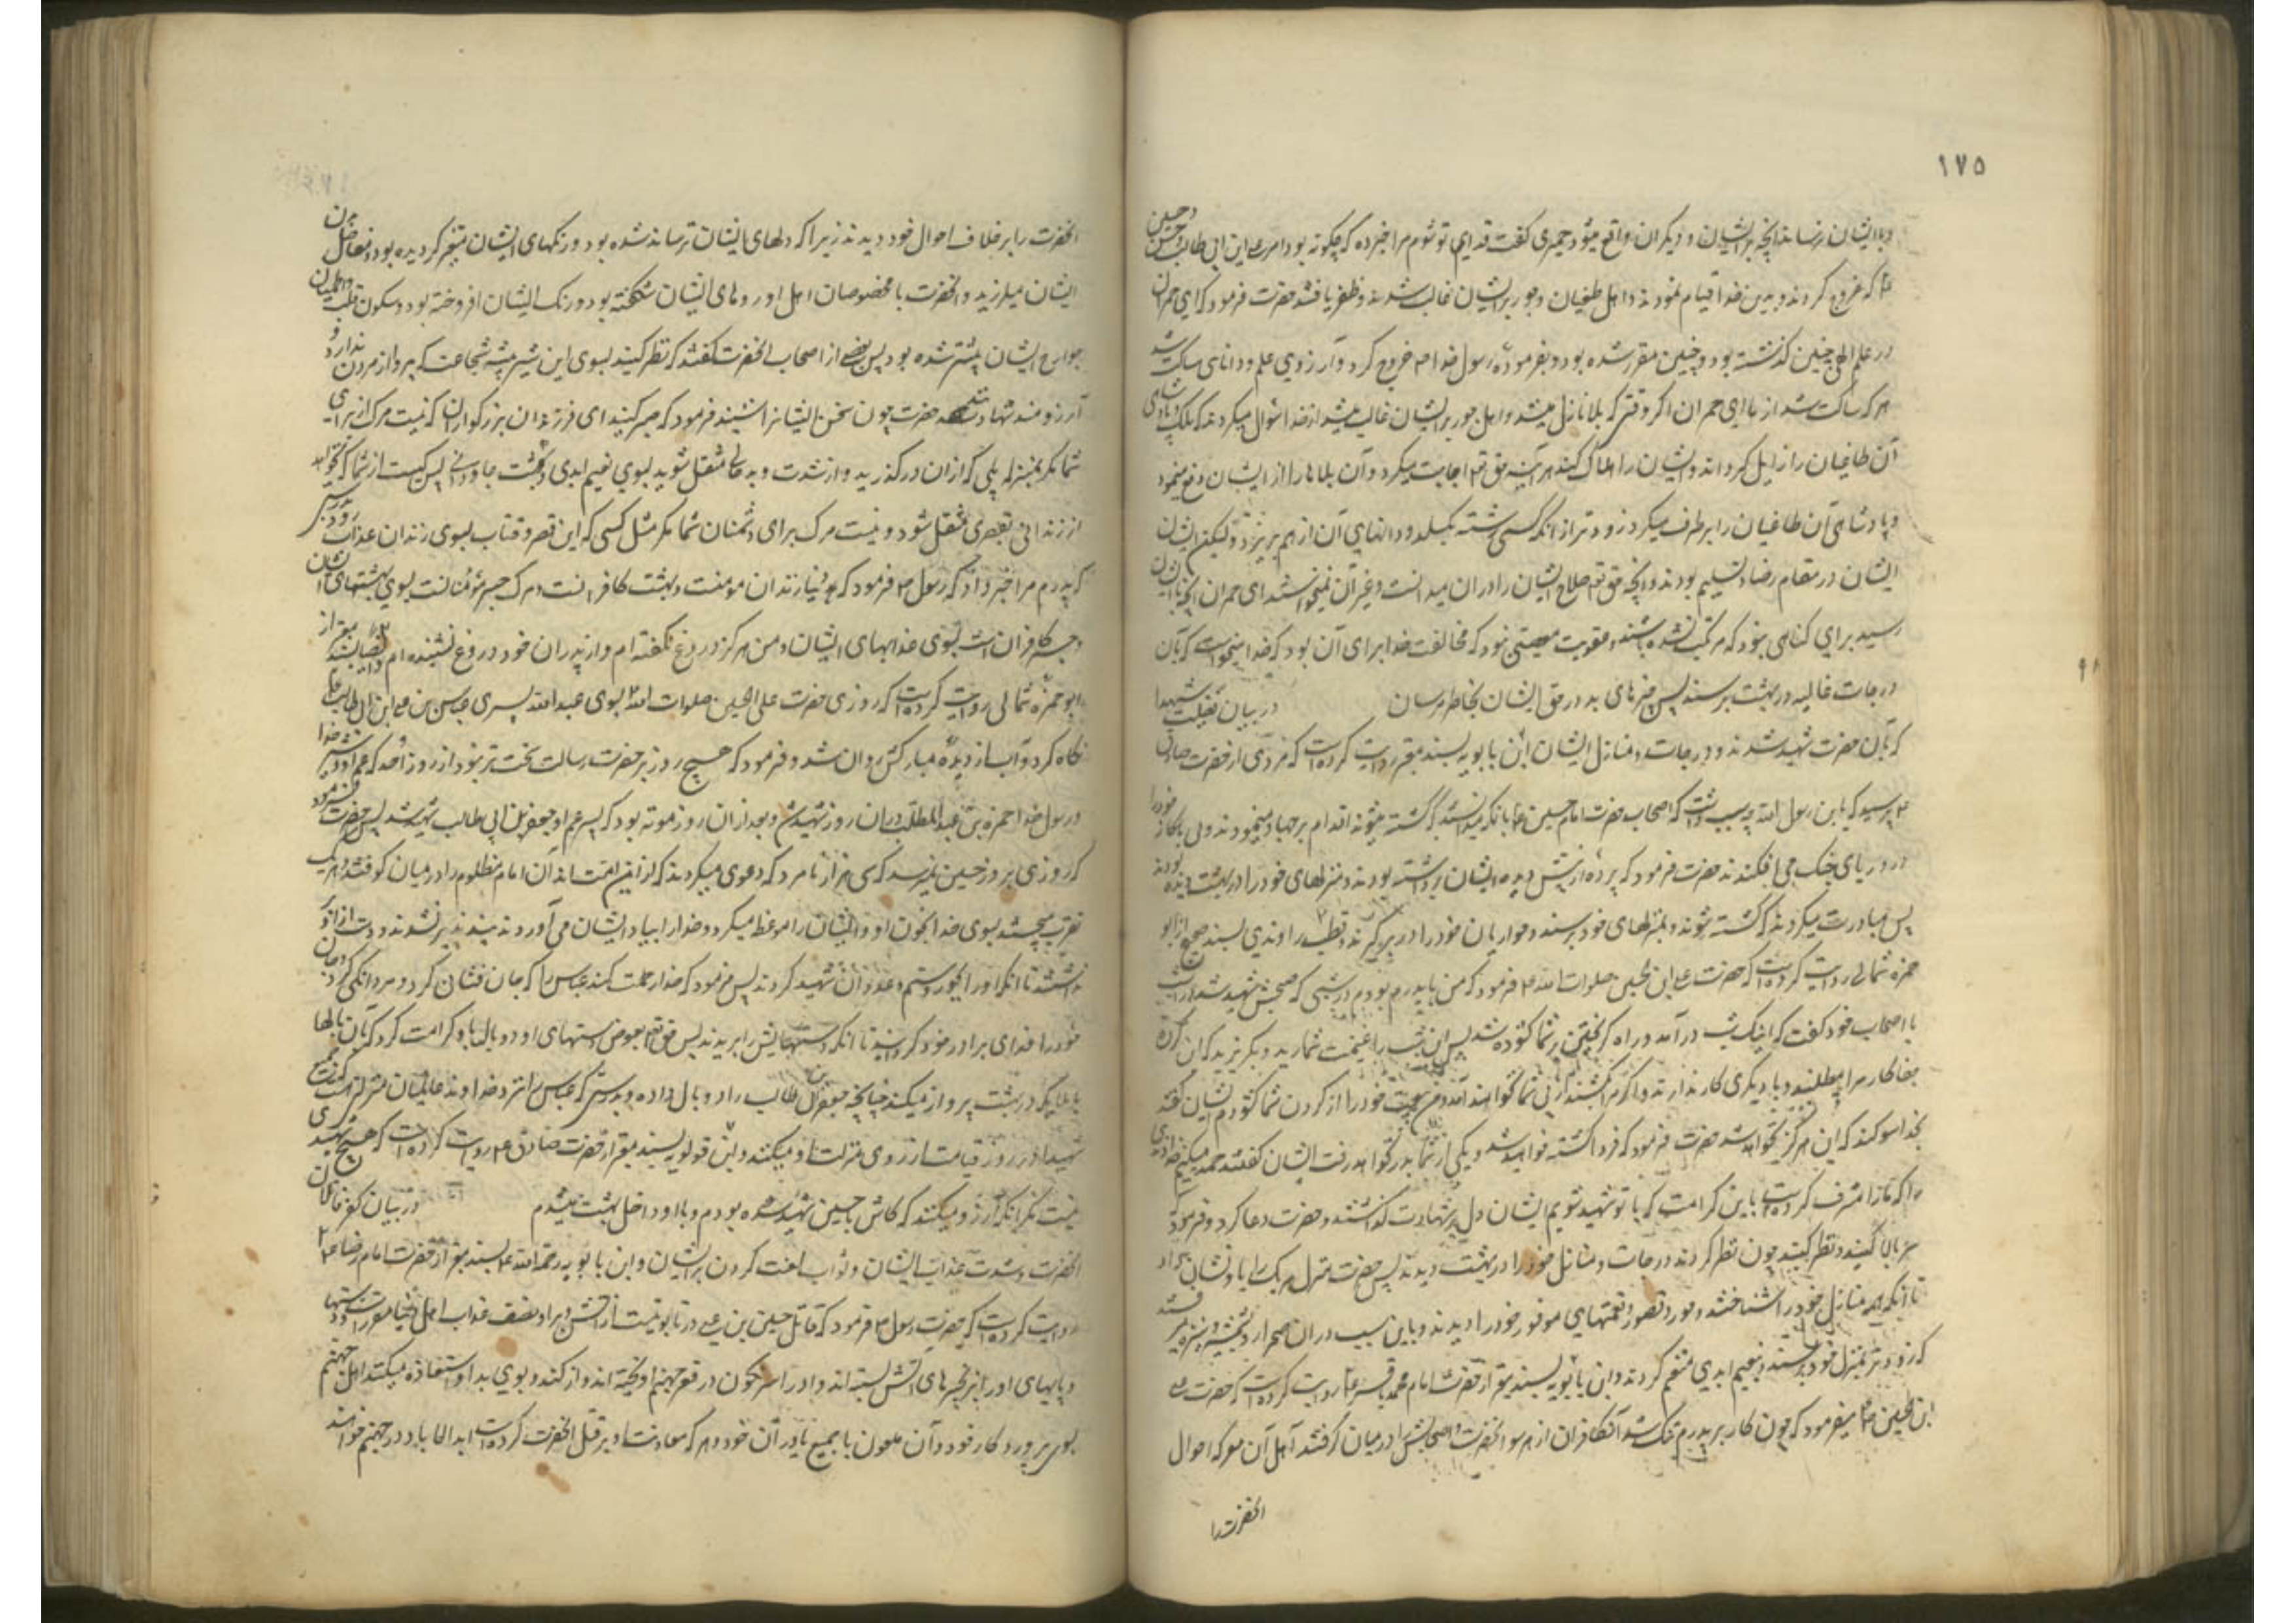 ۱۷۵
و با ایشان رسانید آنچه بر ایشان و دیگران واقع میشود حمیری گفت فدای تو شوم مرا خبر ده که چگونه بود امر علی ابن ابی طالب و حسن و حسین
ع که خروج کردند و بدین خدا قیام نمودند و اهل طغیان و جور بر ایشان غالب شدند و ظفر یافتند حضرت فرمود که ای حمران
در علم الهی چنین گذشته بود و چنین مقرر شده بود و بفرموده رسول خدا ص خروج کرد و از روی علم و دانائی ساکت شد
هر که ساکت شد از ما ای حمران اگر وقتی که بلا نازل میشد و اهل جور بر ایشان غالب میشد از خدا سئوال میکردند که ملک و پادشاهی
آن طاغیان را زایل گرداند و ایشان را هلاک کند هر آینه حق تع اجابت میکرد و آن بلاها را از ایشان دفع مینمود
و پادشاهی آن طاغیان را برطرف میکرد زودتر از آنکه کسی رشته بگسلد و دانهای آن از هم بریزد و لیکن ایشان
ایشان در مقام رضا و تسلیم بودند و آنچه حق تع صلاح ایشان را در آن میدانست و غیر آن نمیخواستند ای حمران آنچه بایشان
رسید برای گناهی نبود که مرتکب شده باشند و عقوبت معصیتی نبود که مخالفت خدا برای آن بود که خدا میخواست که بآن
درجات عالیه در بهشت برسند پس چیزهای بد در حق ایشان بخاطر مرسان در بیان فضیلت شهدا
که با آن حضرت شهید شدند و درجات و منازل ایشان ابن بابویه بسند معتبر روایت کرده است که مردی از حضرت صادق
ع پرسید که یابن رسول الله چه سبب داشت که اصحاب حضرت امام حسین ع با آنکه میدانستند که کشته میشوند اقدام بر جهاد مینمودند و بی باکانه خود را
در دریای جنگ می افکندند حضرت فرمود که پرده از پیش دیده ایشان برداشته بودند و منزلهای خود را در بهشت دیده بودند
پس مبادرت میکردند که کشته شوند و بمنزلهای خود برسند و حوریان خود را در بر گیرند و قطب راوندی بسند صحیح از ابو
حمزه ثمالی روایت کرده است که حضرت علی ابن الحسین صلوات الله ع فرمود که من با پدرم بودم در شبی که صبحش شهید شد
با اصحاب خود گفت که اینک شب در آمد و راه گریختن بر شما گشوده شد پس این شب را غنیمت شمارید و بگریزید که این گروه
جفاکار مرا میطلبند و با دیگری کار ندارند و اگر مرا بکشند از پی شما نخواهند آمد و من بیعت خود را از گردن شما گشودم ایشان گفتند
بخدا سوگند که این هرگز نخواهد شد حضرت فرمود که فردا کشته خواهید شد و یکی از شما بدر نخواهد رفت ایشان گفتند حمد میکنیم خداوندی
را که ما را مشرف کرده است باین کرامت که با تو شهید شویم ایشان دل بر شهادت گذاشتند و حضرت دعا کرد و فرمود
سر بالا کنید و نظر کنید چون نظر کردند درجات و منازل خود را در بهشت دیدند پس حضرت منزل هر یک را باو نشان میداد
تا آنکه همه منازل خود را شناختند و حور و قصور و نعمتهای موفور خود را دیدند و باین سبب در آن صحرا
که زودتر بمنزل خود برسند و بنعیم ابدی متنعم گردند و ابن بابویه بسند معتبر از حضرت امام محمد باقر ع روایت کرده است که حضرت علی
ابن الحسین ع میفرمود که چون کار بر پدرم تنگ شد آن کافران از هر سو آنحضرت و اصحابش را در میان گرفتند اهل آن معرکه احوال
آنحضرت را
آنحضرت را بر خلاف احوال خود دیدند زیرا که دلهای ایشان ترسان شده بود و رنگهای ایشان متغیر گردیده بود و مفاصل بدن
ایشان میلرزید و آنحضرت با مخصوصان اهل او روهای ایشان شکفته بود و رنگ ایشان افروخته بود و سکون قلب و اطمینان
جوارح ایشان بیشتر شده بود پس بعضی از اصحاب آنحضرت گفتند که نظر کنید بسوی این شیر بیشه شجاعت که پروا از مردن ندارد و
آرزومند شهادتست حضرت چون سخن ایشانرا شنید فرمود که صبر کنید ای فرزندان بزرگواران که نیست مرگ از برای
شما مگر بمنزله پلی که از آن درگذرید و از شدت و بدحالی منتقل شوید بسوی نعیم ابدی و بهشت جاودانی پس کیست از شما که نخواهد
از زندانی بقصری منتقل شود و نیست مرگ برای دشمنان شما مگر مثل کسی که از قصر و قباب بسوی زندان عذاب رود
که پدرم مرا خبر داد که رسول ص فرمود که دنیا زندان مومنست و بهشت کافرانست و مرگ جسر مؤمنانست بسوی بهشتهای ایشان
و جسر کافرانست بسوی عذابهای ایشان و من هرگز دروغ نگفته ام و از پدران خود دروغ نشنیده ام و ایضا بسند معتبر از
ابو حمزه ثمالی روایت کرده است که روزی حضرت علی بن الحسین صلوات الله بسوی عبد الله پسر عباس بن علی ابن ابی طالب ع
نگاه کرد و آب از دیده مبارکش روان شد و فرمود که هیچ روز بر حضرت رسالت سخت تر نبود از روز احد که عم او و شیر خدا
و رسول خدا حمزه بن عبدالمطلب در آن روز شهید شد و بعد از آن روز موته بود که پسر عم او جعفر بن ابی طالب شهید شد پس حضرت فرمود
که روزی بروز حسین نمیرسد که سی هزار نامرد که دعوی میکردند که از این امت اند آن امام مظلوم را در میان گرفتند و هر یک
تقرب میجستند بسوی خدا بخون او و ایشان را موعظه میکرد و خدا را بیاد ایشان می آورد و پند پذیر نشدند و دست از او
نداشتند تا آنکه او را بجور و ستم و عدوان شهید کردند پس فرمود که خدا رحمت کند عباس را که جان فشان کرد و مردانگی کرد و جان
خود را فدای برادر خود گردانید تا آنکه دستهایش را بریدند پس حق تع بعوض دستهای او دو بال باو کرامت کرد که بآن بالها
با ملائکه در بهشت پرواز میکند چنانچه جعفر بن ابی طالب را دو بال داده و بدرستی که عباس را نزد خداوند عالمیان منزلتی هست که جمیع
شهیدان در روز قیامت آرزوی منزلت او میکنند و ابن قولویه بسند معتبر از حضرت صادق ع روایت کرده است که هیچ شهیدی
نیست مگر آنکه آرزو میکنند که کاش با حسین شهید شده بودم و با او داخل بهشت میشدم در بیان کفر قاتلان
آنحضرت و شدت عذاب ایشان و ثواب لعنت کردن بر ایشان و ابن بابویه رحمة الله ع بسند معتبر از حضرت امام رضا ع
روایت کرده است که حضرت رسول ص فرمود که قاتل حسین بن علی در تابوتیست از آتش و بر او نصف عذاب اهل دنیا مقرر است و دستها
و پایهای او را بزنجیرهای آتش بسته اند و او را سرنگون در قعر جهنم آویخته اند و از گند و بوی بد او استعاذه میکنند اهل جهنم
بسوی پروردگار خود و آن ملعون با جمیع یاوران خود و هر که معاونت او بر قتل آنحضرت کرده است ابد الاباد در جهنم خواهند